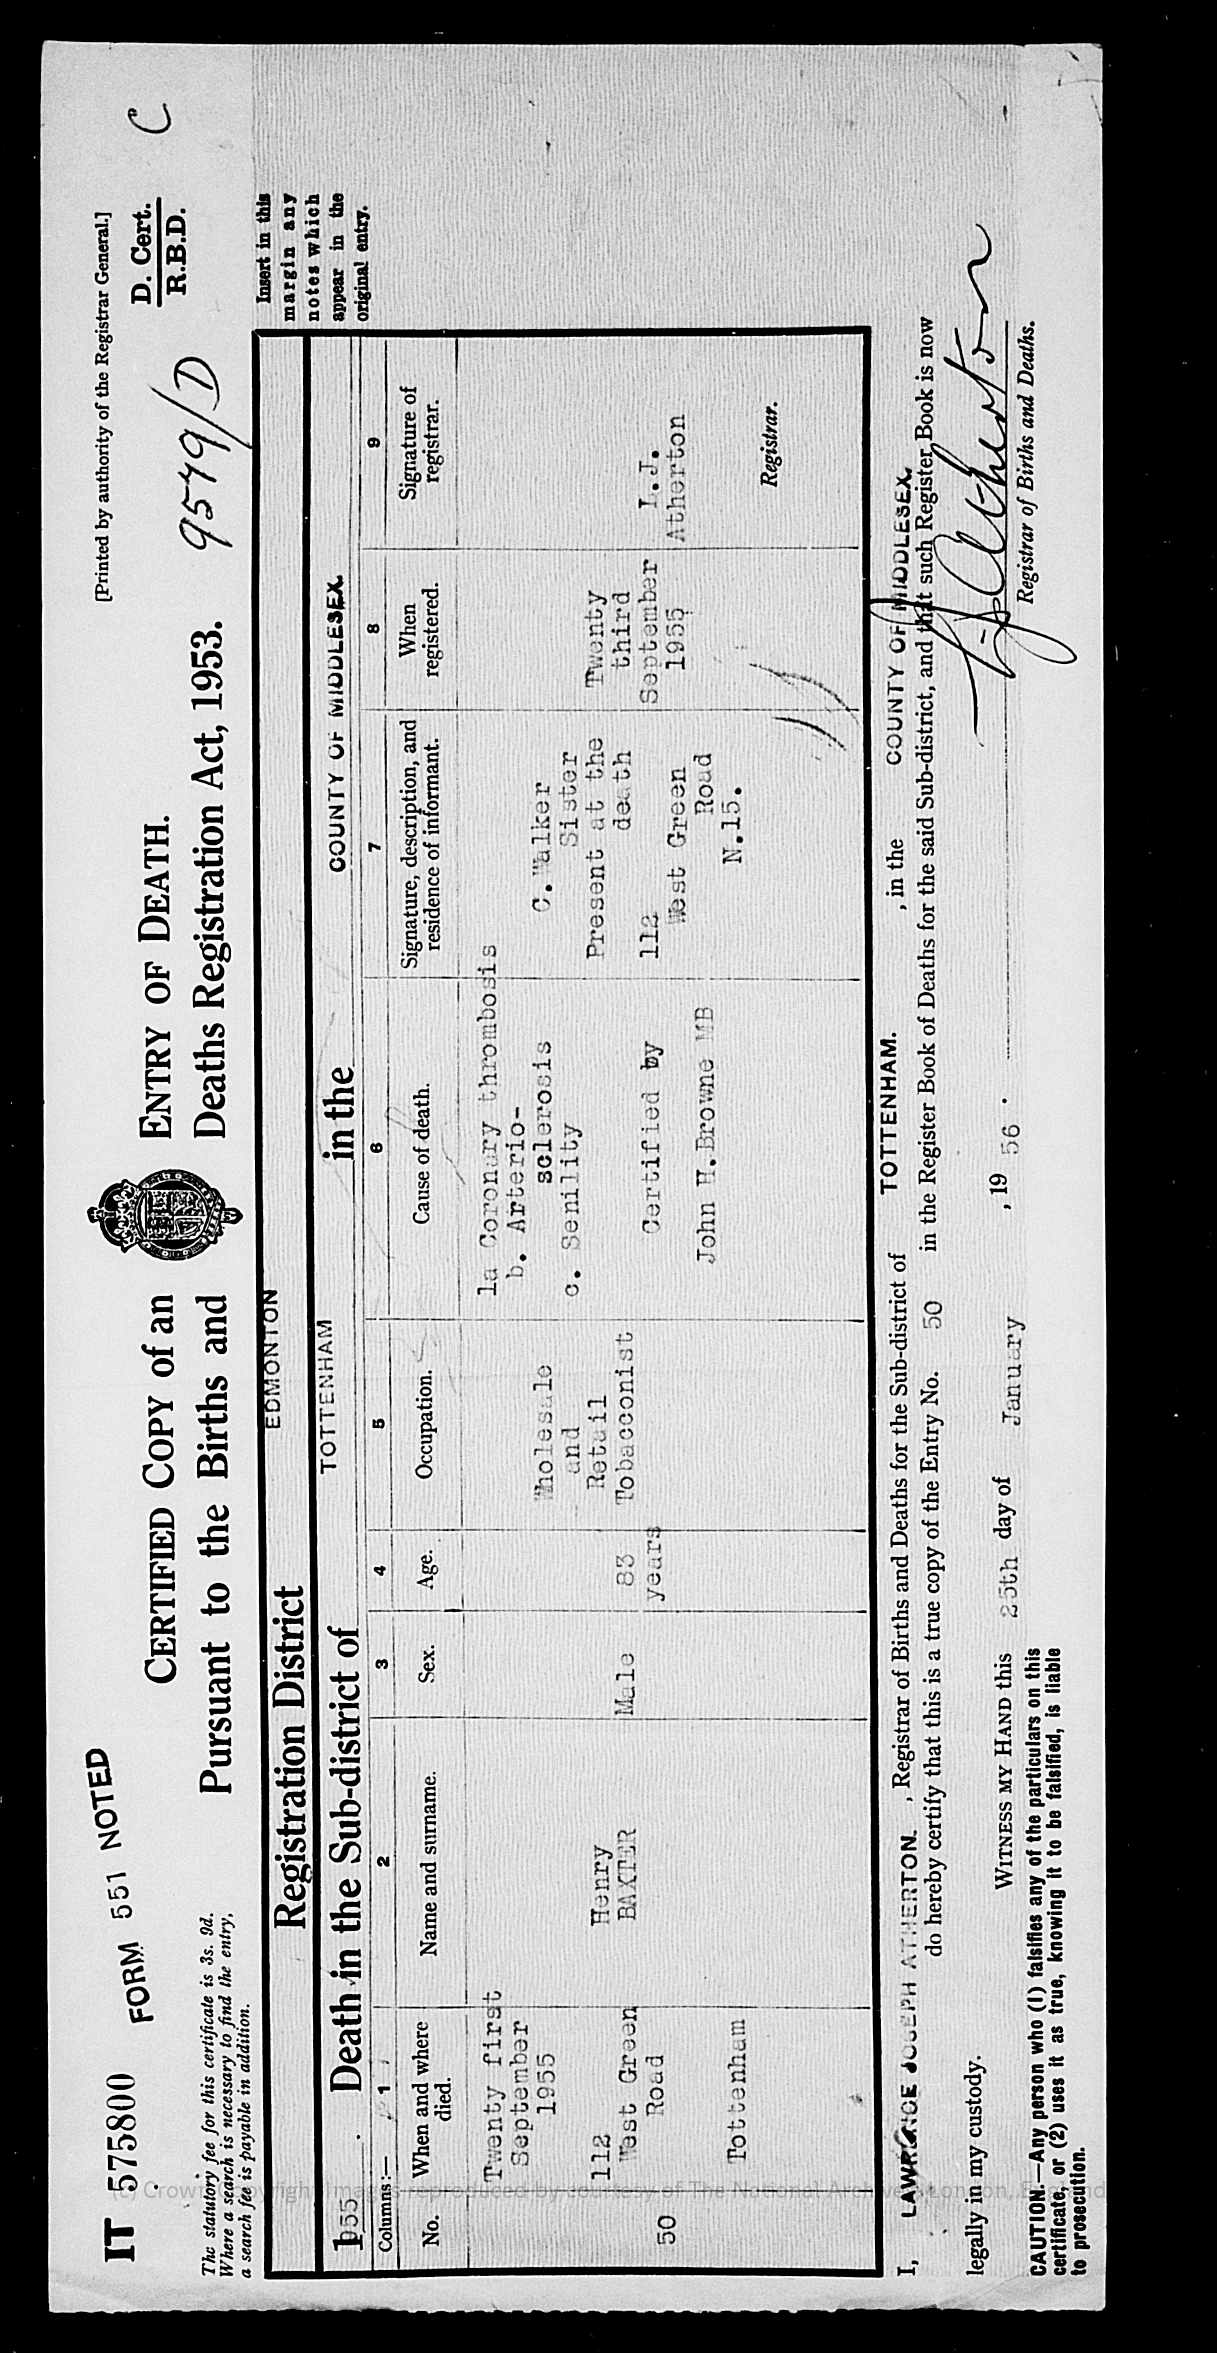 IT 575800
FORM 551 NOTED
[Printed by authority of the Registrar General.]
The statutory fee for this certificate is 3s. 9d.
Where a search is necessary to find the entry,
a search fee is payable in addition.
CERTIFIED COPY of an ENTRY OF DEATH.
Pursuant to the Births and Deaths Registration Act, 1953.
D. Cert.
R.B.D.
C
9579/D
Insert in this
margin any
notes which
appear in the
original entry.
Registration District EDMONTON
1955. Death in the Sub-district of TOTTENHAM in the COUNTY OF MIDDLESEX.
Columns:— 1 2 3 4 5 6 7 8 9
No.
When and where
died.
Name and surname.
Sex.
Age.
Occupation.
Cause of death.
Signature, description, and
residence of informant.
When
registered.
Signature of
registrar.
50
Twenty first
September
1955
112
West Green
Road
Tottenham
Henry
BAXTER
Male
83
years
Wholesale
and
Retail
Tobacconist
1a Coronary thrombosis
b. Arterio-
sclerosis
c. Senility
Certified by
John H. Browne MB
C. Walker
Sister
Present at the
death
112
West Green
Road
N.15.
Twenty
third
September
1955
L.J.
Atherton
Registrar.
I, LAWRENCE JOSEPH ATHERTON. , Registrar of Births and Deaths for the Sub-district of TOTTENHAM. , in the COUNTY OF MIDDLESEX,
do hereby certify that this is a true copy of the Entry No. 50 in the Register Book of Deaths for the said Sub-district, and that such Register Book is now
legally in my custody.
WITNESS MY HAND this 25th day of January , 19 56 .
L J Atherton
Registrar of Births and Deaths.
CAUTION.—Any person who (1) falsifies any of the particulars on this
certificate, or (2) uses it as true, knowing it to be falsified, is liable
to prosecution.
(c) Crown Copyright Images reproduced by courtesy of The National Archives, London, England